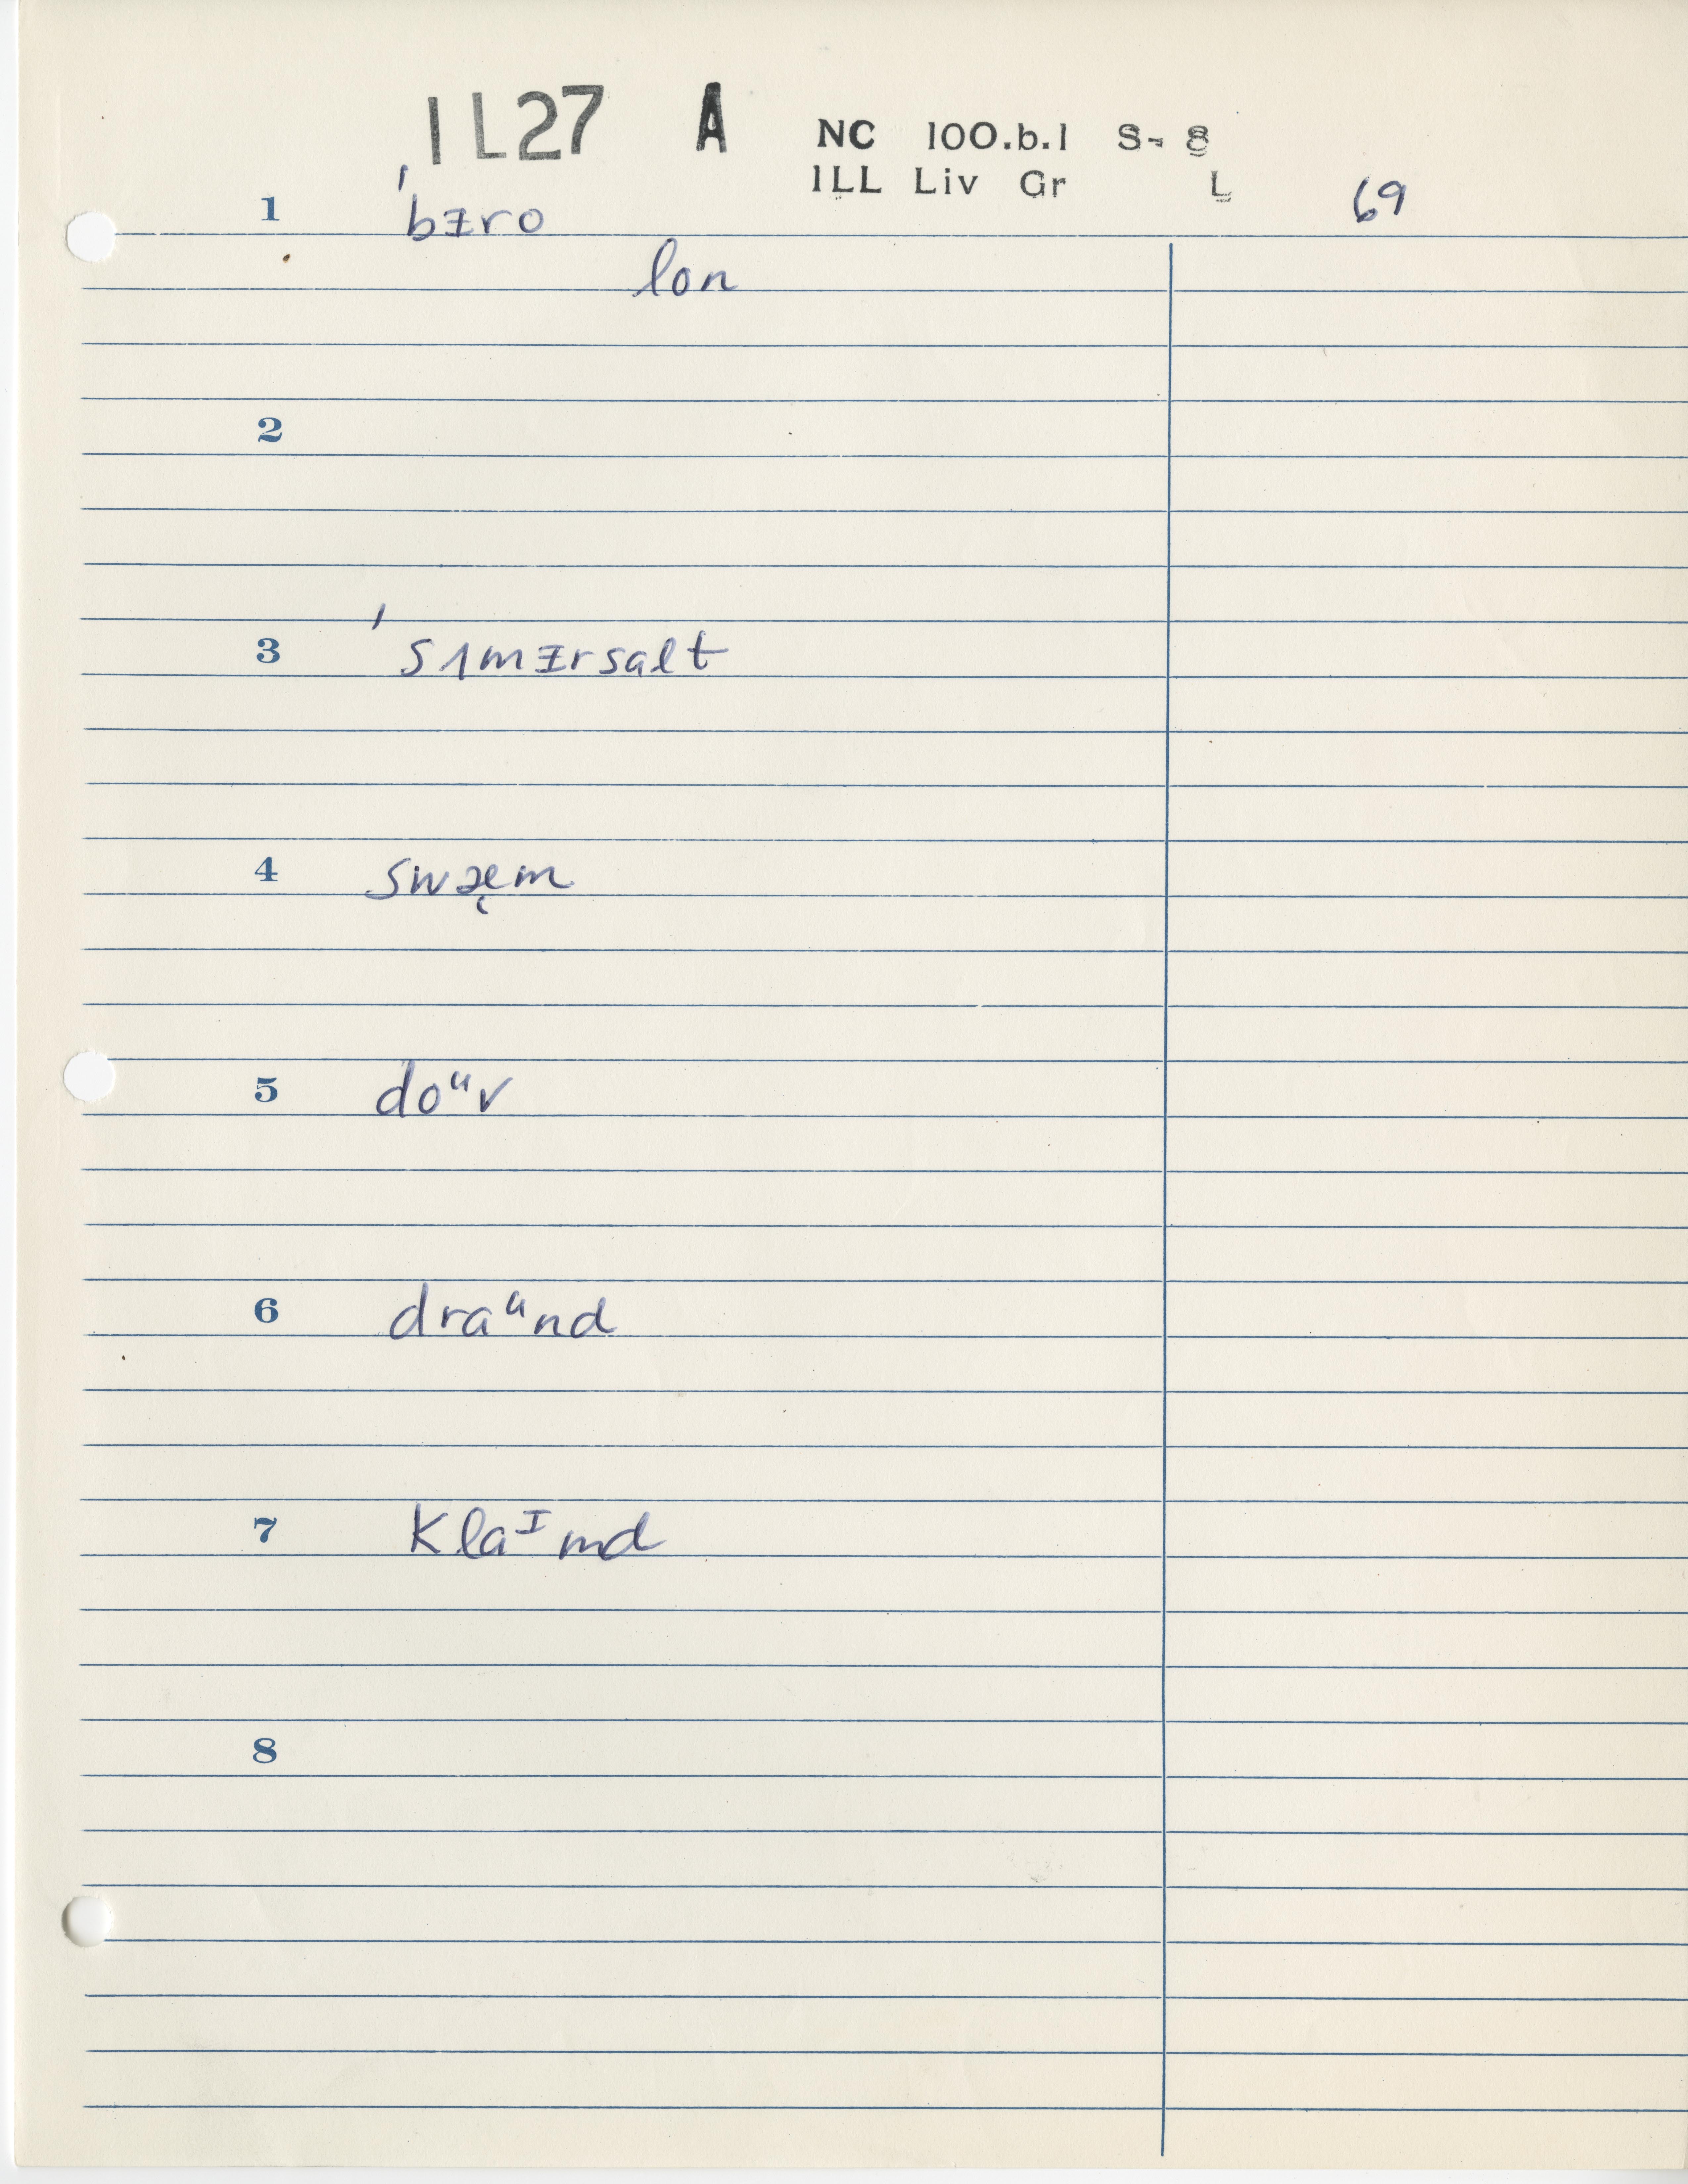 1L27 A NC 100.b.1 S- 8
ILL Liv Gr L 69
1 ˈbᵻro
lon
2
3 ˈsʌmᵻrsalt
4 swæ̨m
5 doᵘv
6 draᵘnd
7 klaᴵmd
8